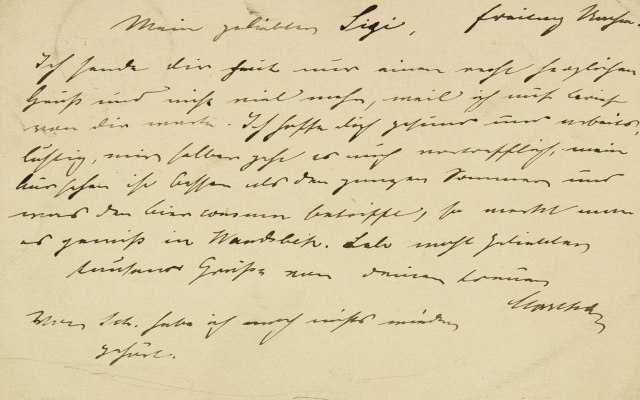 Mein geliebter Sigi, Freitag Nachm.
Ich sende dir heut nur einen recht herzlichen
Gruß und nicht viel mehr, weil ich auf Brief
von dir warte. Ich hoffe dich gesund und arbeits-
lustig, mir selber geht es auch vortrefflich, mein
Aussehen ist besser als den ganzen Sommer und
was den bierconsum betrifft, so merkt man
es gewiß in Wandsbek. Leb wohl geliebter
tausend Grüße von deiner treuen
Martha
Von Sch. habe ich noch nichts wieder
gehört.